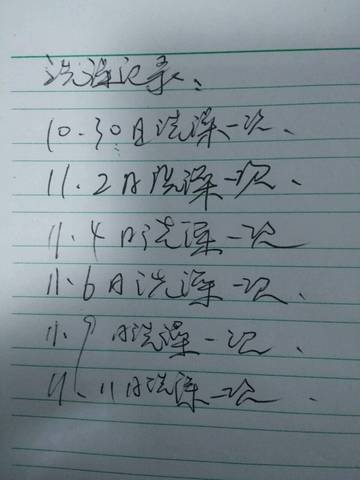 洗澡记录:
10.30日洗澡一次、
11.2日洗澡一次、
11.4日洗澡一次
11.6日洗澡一次、
11.9日洗澡一次、
11.11日洗澡一次、